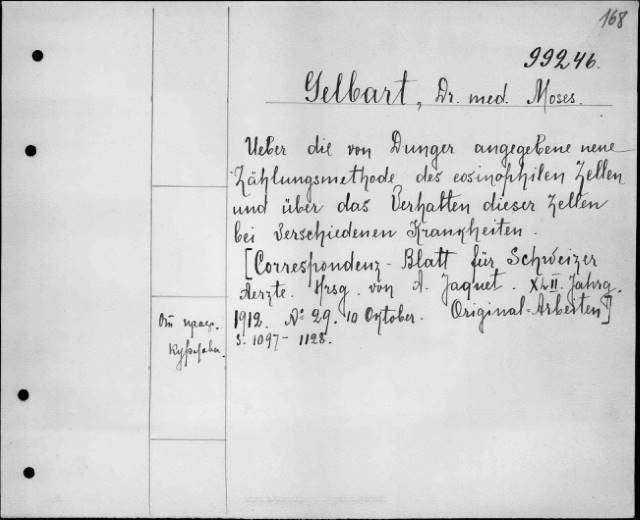 168
99246.
Gelbart, Dr. med. Moses.
Ueber die von Dunger angegebene neue
Zählungsmethode des eosinophilen Zellen
und über das Verhalten dieser Zellen
bei verschiedenen Krankheiten.
[Correspondenz-Blatt für Schweizer
Aerzte. Hrsg. von A. Jaquet. XLII. Jahrg.
1912. No 29. 10 Oktober. Original-Arbeiten]
S. 1097-1128.
От